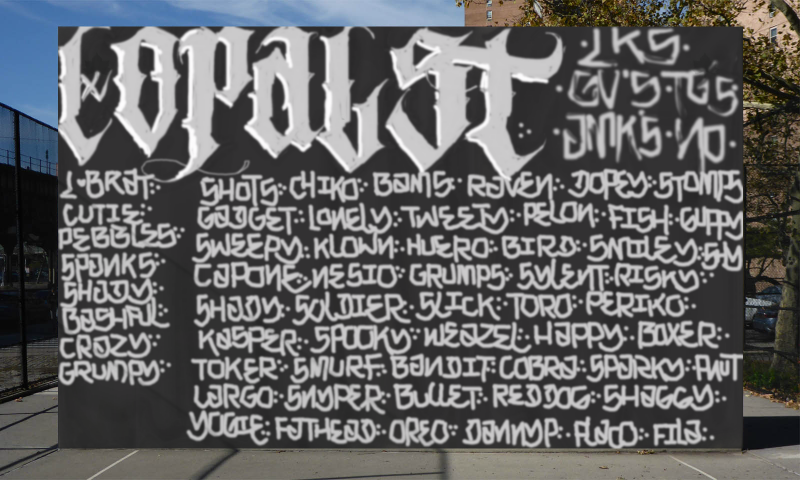 COPALST
LKS.
GV'S·TGS
JMK'S·NO.
L·BRAT:
CUTIE:
PEBBLES:
SPANKS:
SHADY:
BASHFUL:
CRAZY:
GRUMPY:
SHOTS: CHIKO: BAMS: RAVEN: DOPEY: STOMPS
GADGET: LONELY: TWEETY: PELON: FISH: GUPPY
SWEEPY: KLOWN: HUERO: BIRD: SMILEY:
CAPONE: NESIO: GRUMPS: SYLENT: RISKY:
SHADY: SOLDIER: SLICK: TORO: PERIKO:
KASPER: SPOOKY: WEAZEL: HAPPY: BOXER:
TOKER: SMURF: BANDIT: COBRA: SPARKY:
LARGO: SNYPER: BULLET: RED DOG: SHAGGY:
YOGIE: FATHEAD: OREO: FLACO: FILA: